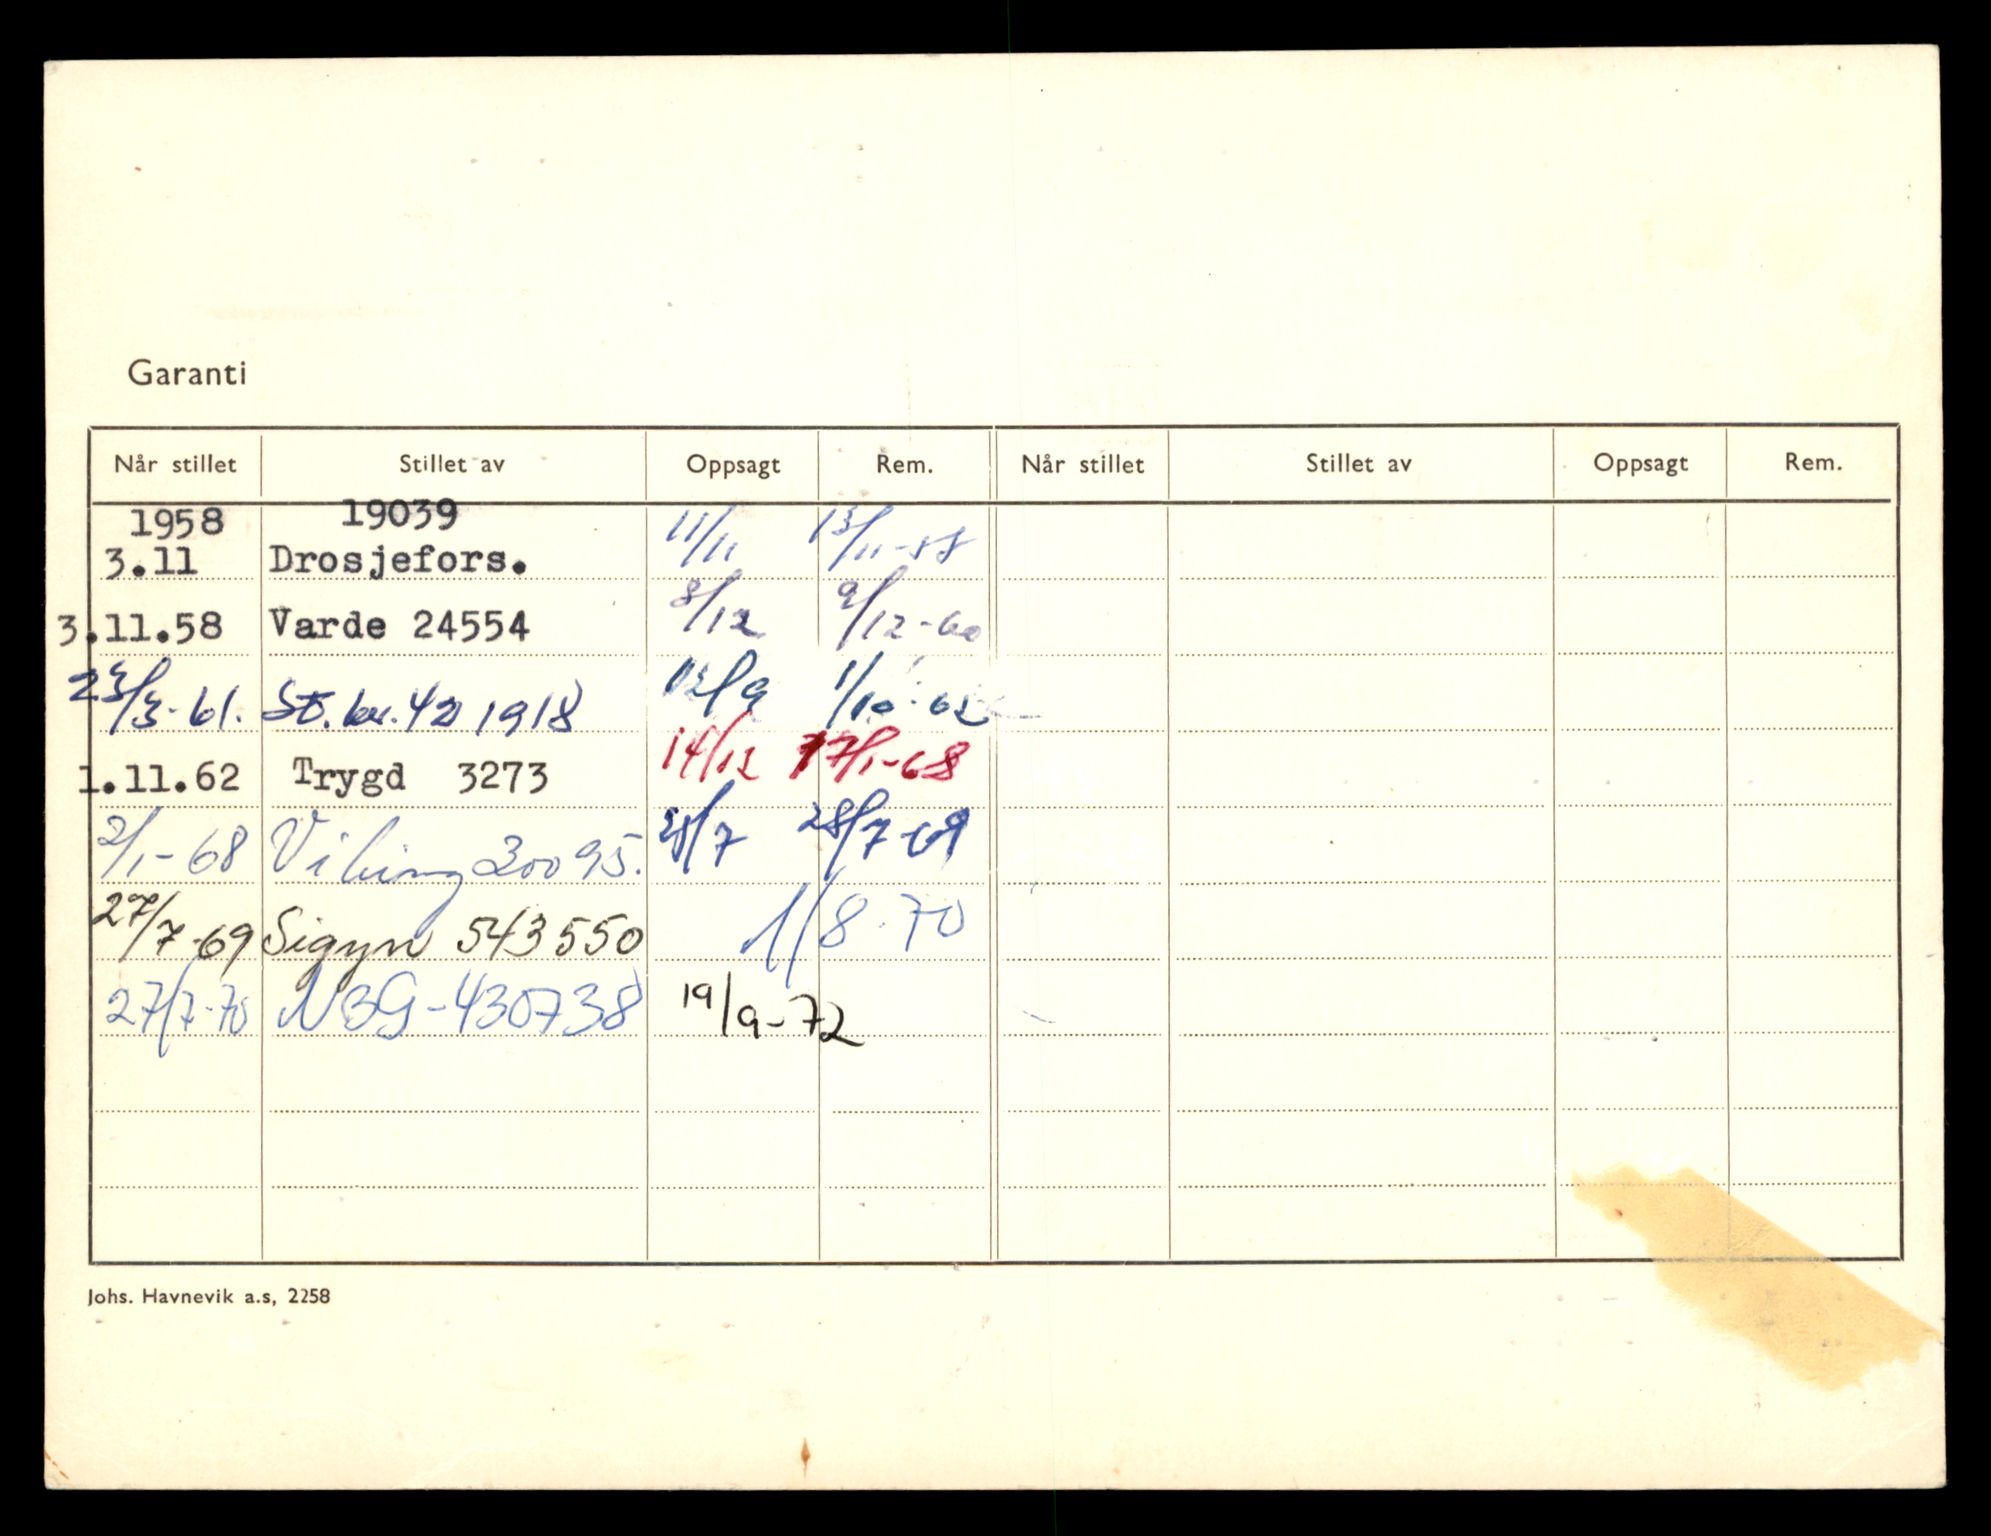 Garanti
Når stillet Stillet av Oppsagt Rem. Når stillet Stillet av Oppsagt Rem.
1958 19039 11/11 13/11-58
3.11 Drosjefors.
3.11.58 Varde 24554 8/12 9/12-60
23/3-61. St. br. 42 1918 12/9 1/10-62
1.11.62 Trygd 3273 14/12 17/1-68
2/1-68 Viking 20095. 28/7 28/7-69
27/7-69 Sigyn 543550 1/8-70
27/7-70 NBG-430738 19/9-72
Johs. Havnevik a.s, 2258